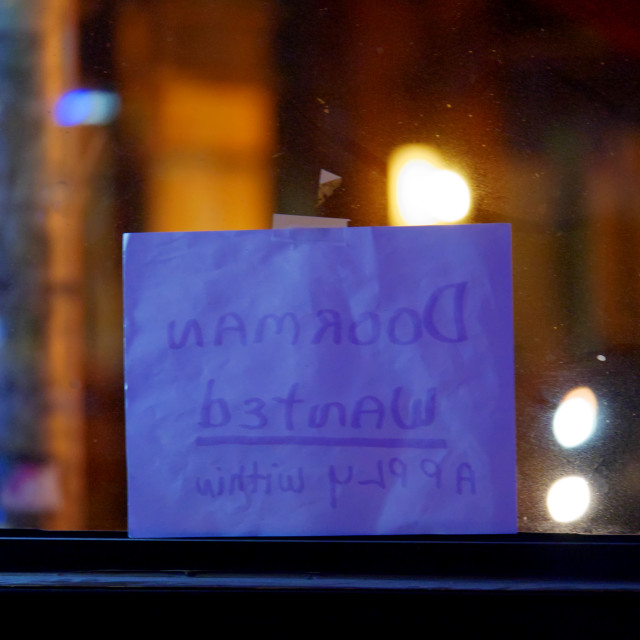 DOORMAN
WANTEd
APPLY within